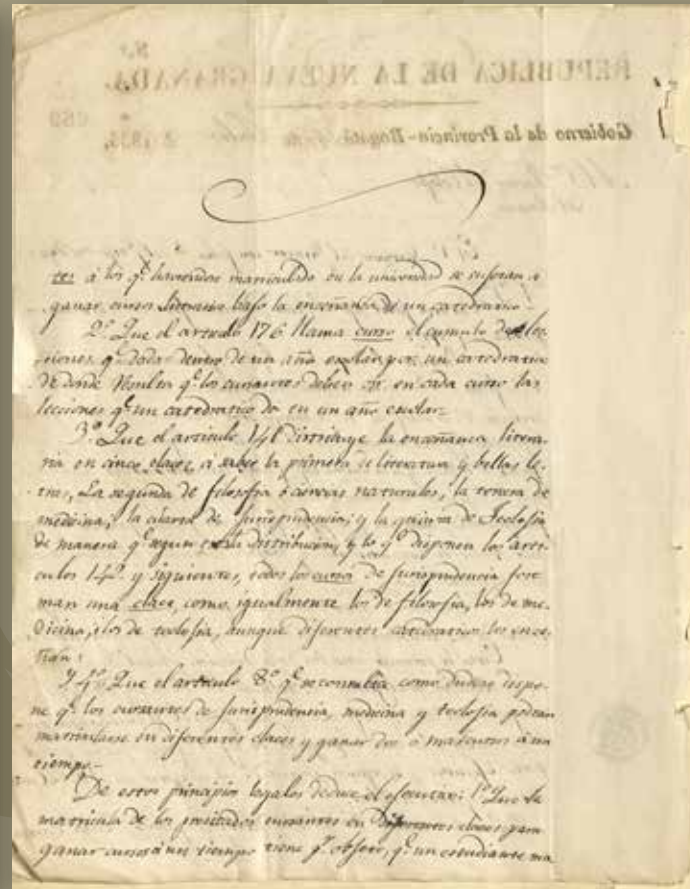 REPUBLICA DE LA NUEVA GRANADA.
Gobierno de la Provincia - Bogotá
tes á los q.e haviendose matriculado en la universidad se sugetan á
ganar cursos literarios bajo la enseñanza de un catedratico.
2.o Que el articulo 176 llama curso el cumulo de lec
ciones q.e dada dentro de un año explica un catedratico
de donde resulta q.e los cursantes deben oir en cada curso las
lecciones q.e un catedratico dé en un año escolar.
3.o Que el articulo 141 distribuye la enseñanza litera
ria en cinco clases, á saber la primera de literatura y bellas le
tras, La segunda de filosofia ó ciencias naturales, la tercera de
medicina, la cuarta de Jurisprudencia, y la quinta de Teologia
de manera q.e segun esta distribucion, y lo q.e disponen los arti
culos 142 y siguientes, todos los cursos de Jurisprudencia for
man una clase, como igualmente los de filosofia, los de me
dicina, i los de teologia, aunque diferentes catedraticos los ense
ñan:
Y 4.o Que el articulo 8.o q.e se consulta como dudoso dispo
ne q.e los cursantes de Jurisprudencia, medicina y teologia podran
matricularse en diferentes clases y ganar dos ó mas cursos á un
tiempo.-
De estos principios legales deduce el : 1.o Que la
matricula de los precitados cursantes en diferentes clases para
ganar cursos á un tiempo tiene p.r objeto, q.e un estudiante ma